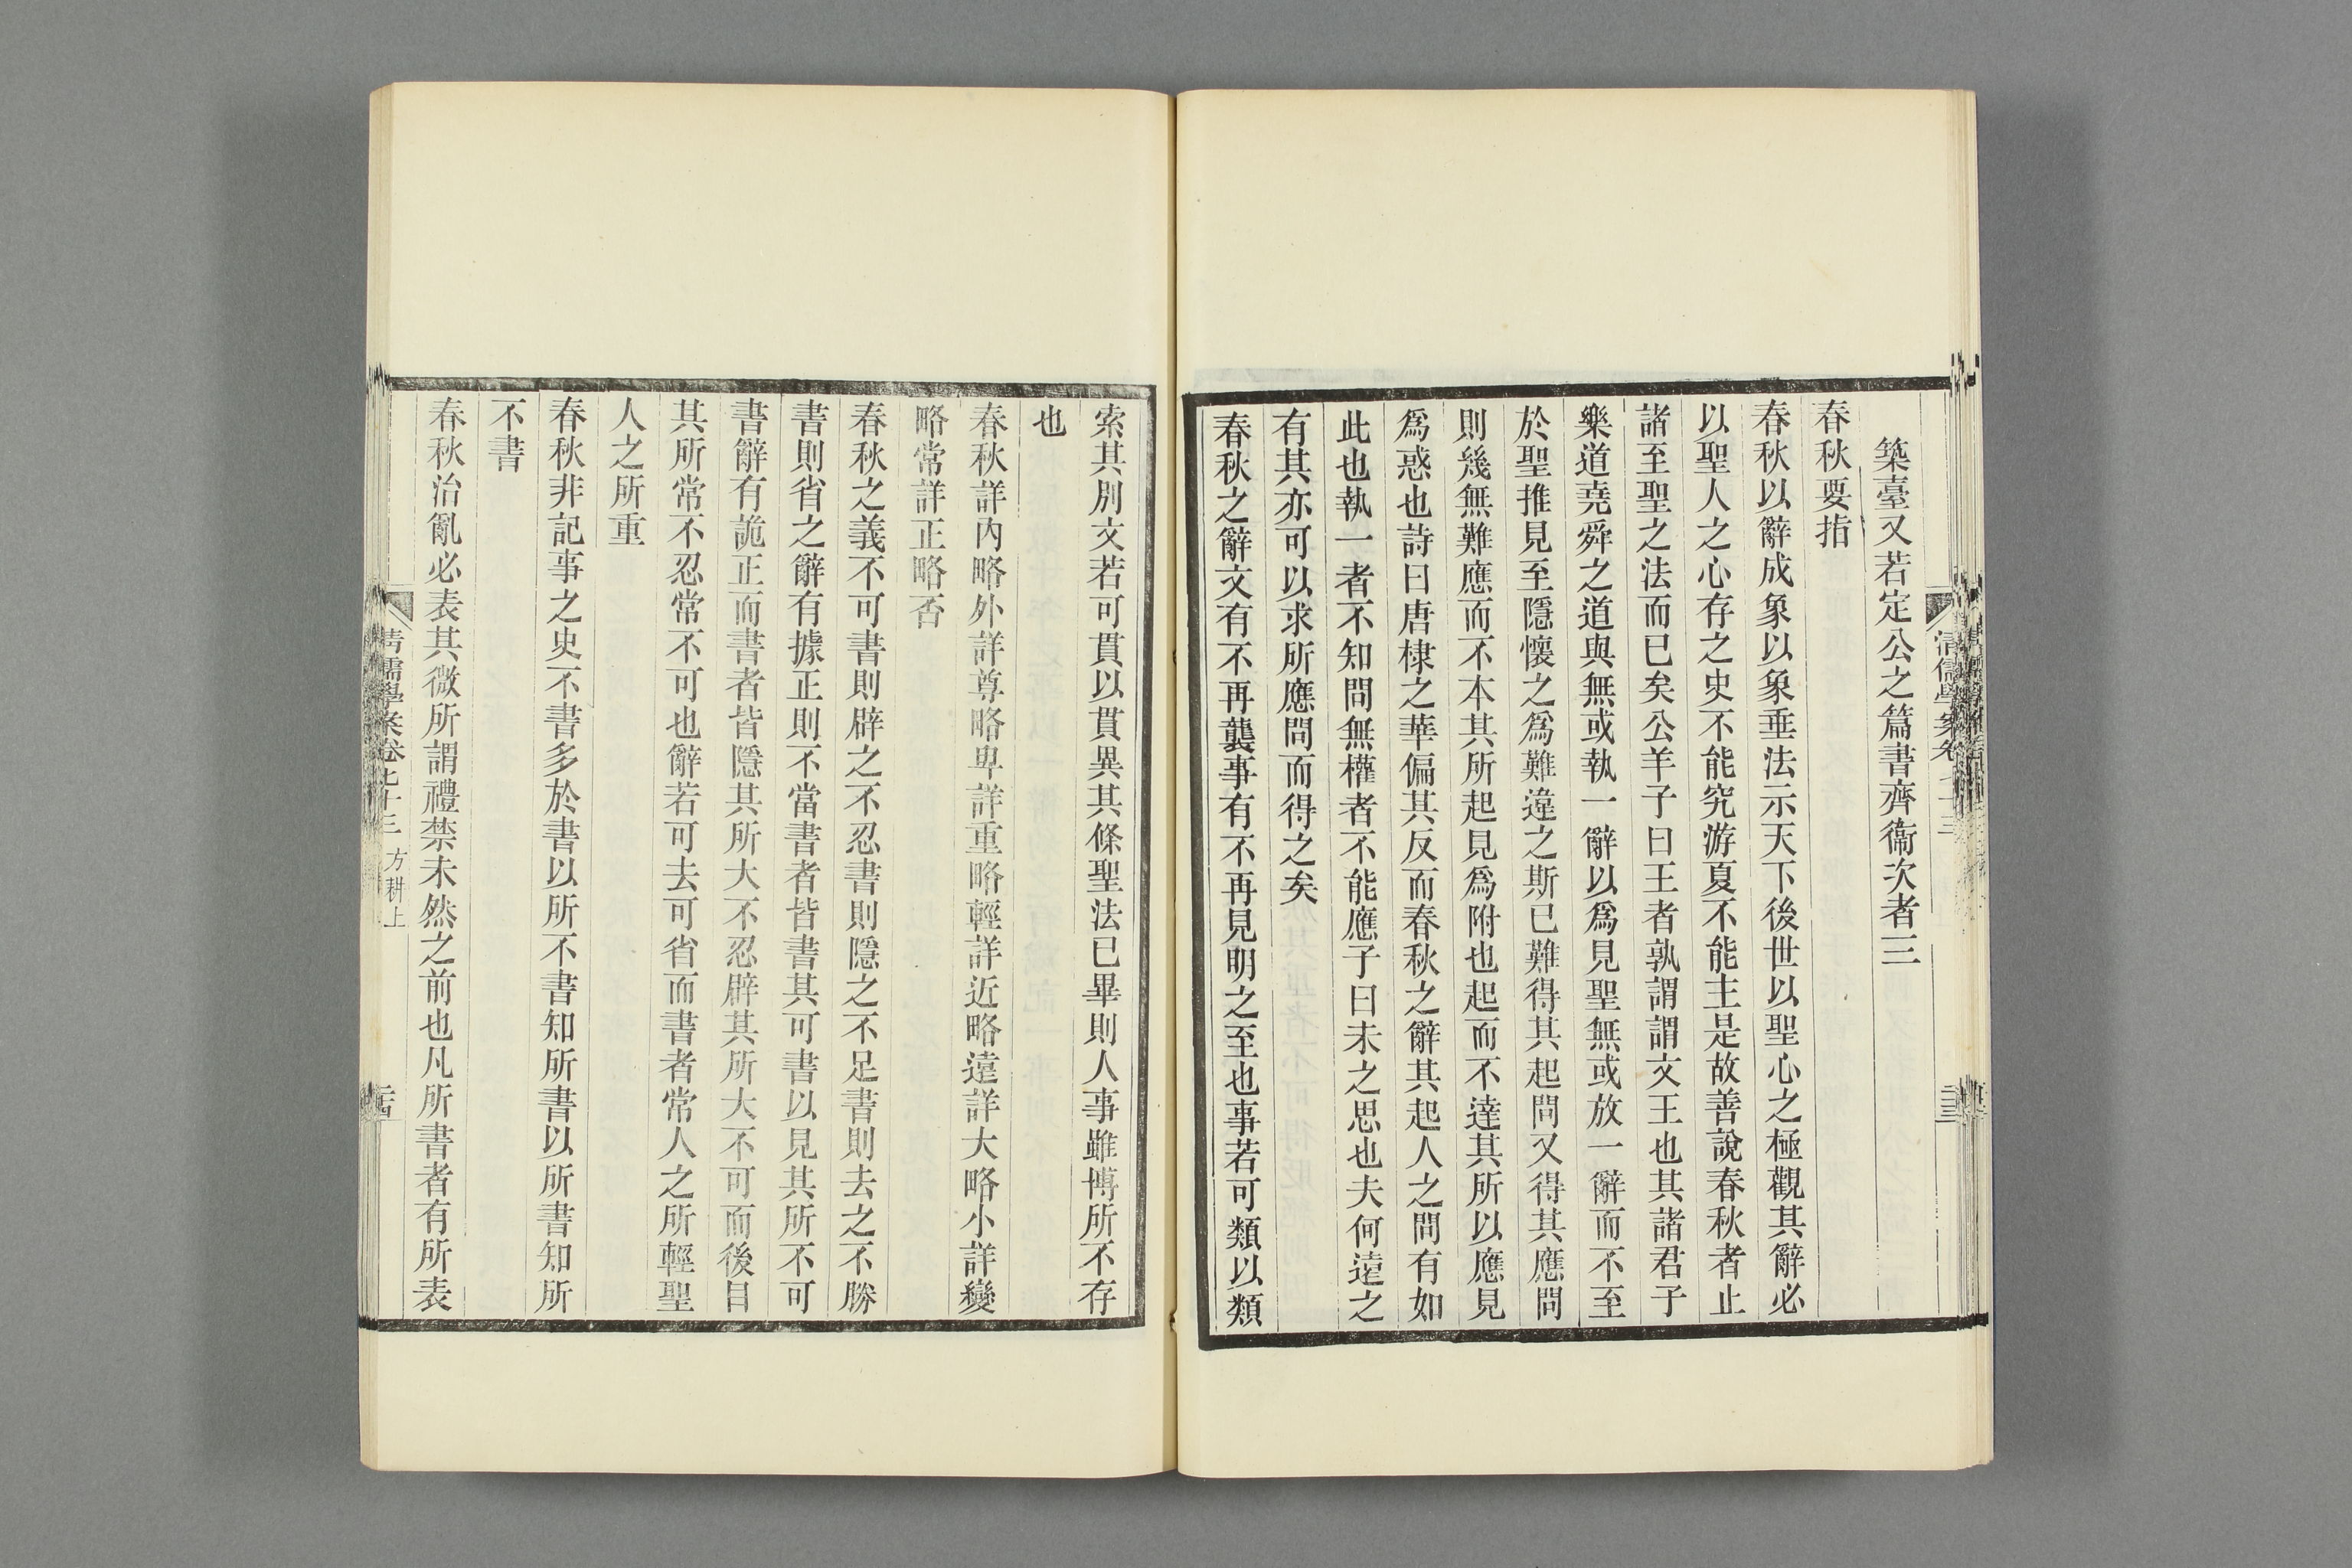 築臺又若定公之篇書齊衞次者三
春秋要指
春秋以辭成象以象垂法示天下後世以聖心之極觀其辭必
以聖人之心存之史不能究游夏不能主是故善說春秋者止
諸至聖之法而已矣公羊子曰王者孰謂謂文王也其諸君子
樂道堯舜之道與無或執一辭以爲見聖無或放一辭而不至
於聖推見至隱懷之爲難違之斯已難得其起問又得其應問
則幾無難應而不本其所起見爲附也起而不達其所以應見
爲惑也詩曰唐棣之華偏其反而春秋之辭其起人之問有如
此也執一者不知問無權者不能應子曰未之思也夫何遠之
有其亦可以求所應問而得之矣
春秋之辭文有不再襲事有不再見明之至也事若可類以類
索其別文若可貫以貫異其條聖法已畢則人事雖博所不存
也
春秋詳內略外詳尊略卑詳重略輕詳近略遠詳大略小詳變
略常詳正略否
春秋之義不可書則辟之不忍書則隱之不足書則去之不勝
書則省之辭有據正則不當書者皆書其可書以見其所不可
書辭有詭正而書者皆隱其所大不忍辟其所大不可而後目
其所常不忍常不可也辭若可去可省而書者常人之所輕聖
人之所重
春秋非記事之史不書多於書以所不書知所書以所書知所
不書
春秋治亂必表其微所謂禮禁未然之前也凡所書者有所表
清儒學案卷七十三 方耕上